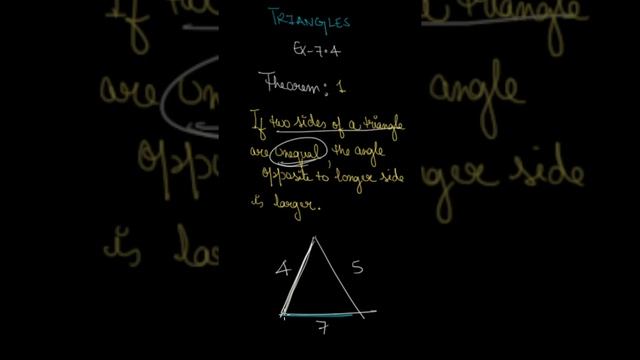 TRIANGLES
Ex-7.4
Theorem: 1
If two sides of a triangle
are unequal, the angle
opposite to longer side
is larger.
4 5
7